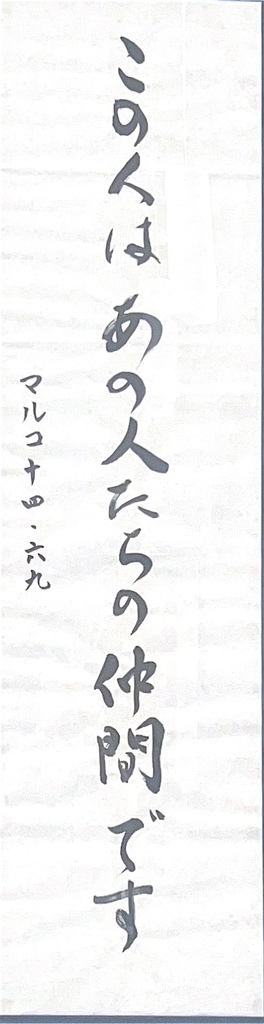 この人は あの人たちの 仲間です
マルコ十四・六九